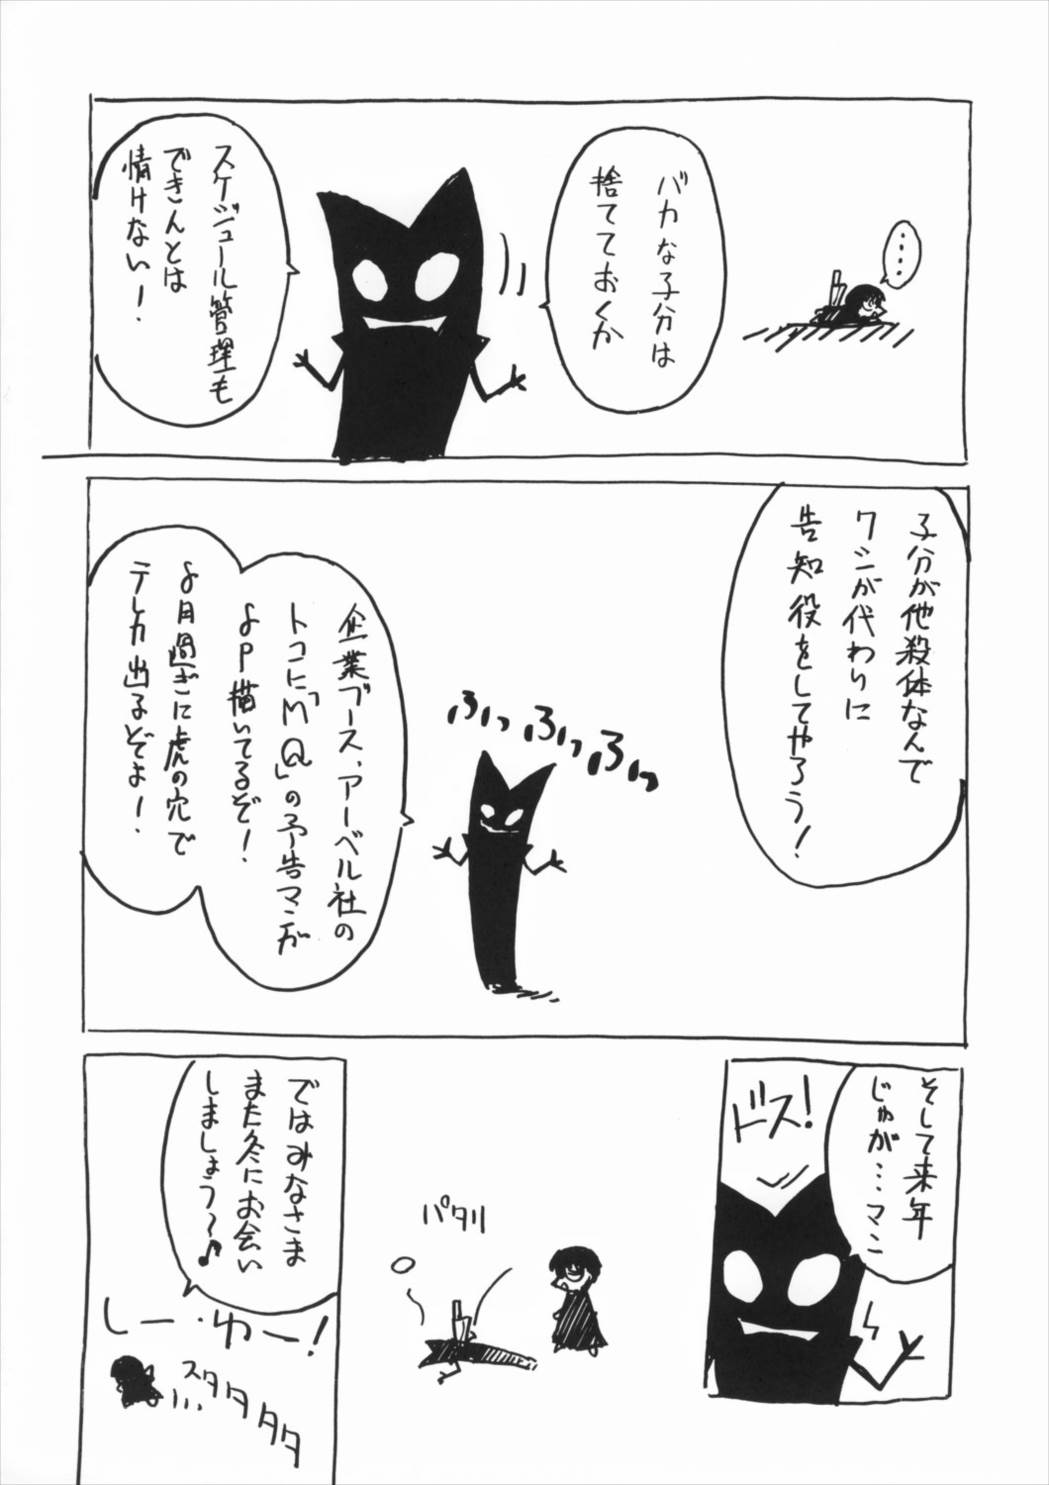 ・・・・
バカな子分は
捨てておくか
スケジュール管理も
できんとは
情けない!
子分が他殺体なんで
ワシが代わりに
告知役をしてやろう!
ふっふっふっ
企業ブース、アーベル社の
トコに「M Q」の予告マンガ
8P描いてるぞ!
8月過ぎに虎の穴で
テレカ出るぞよ!
そして来年
じゃが…マン
ドス!
パタリ
ではみなさま
また冬にお会い
しましょう〜♪
しー・ゆー!
スタタタタタ